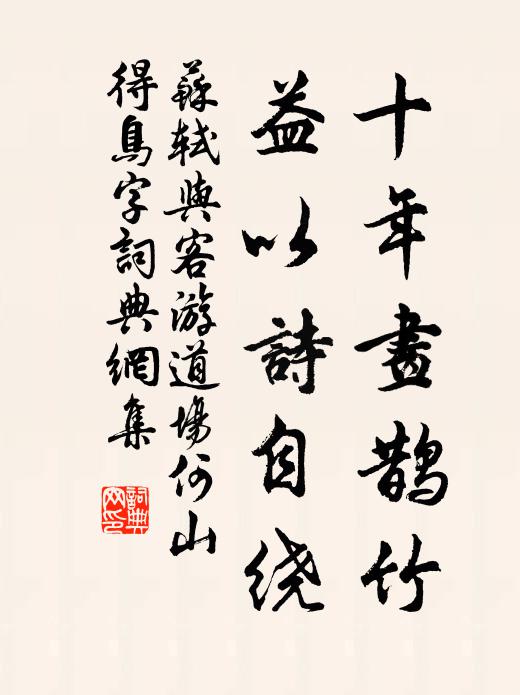 十年畫鵲竹
益以詩自绕
蘇軾與客游道場何山
得鳥字詞典網集
詞典網印